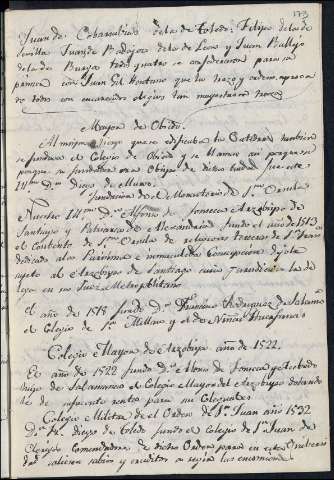 173
Juan de Cobarrubias de la de Toledo. Felipe de la de
Sevilla Juan de Badajoz de la de Leon y Juan Ballejo
de la de Burgos todos quatro se confederaron para su
primera con Juan Gil Hontano que la trazo y ordeno,
de todos con encarecidos elogios tan magestuosa traza
Mayor de Obiedo.
Al mismo tiempo que se edificaba la Catedral tambien
se fundava el Colegio de Obiedo y se llamo asi porque
porque su fundador era Obispo de dicha ciudad fue este
Illmo. Dn. Diego de Muros.
Fundacion de el Monasterio de Sta. Ursula
Nuestro Illmo. Dn. Alfonso de Fonseca Arzobispo de
Santiago y Patriarca de Alexandria fundo el año de 1513
el Convento de Sta. Ursula de religiosas terceras de Sn. Franco.
dedicado a la Purisima e inmaculada Concepcion dejole
sujeto al Arzobispo de Santiago cuia Jurisdiccion
en su Juez Metropolitano
el año de 1518 fundo Dn. Francisco Rodriguez de Salama
el Colegio de Sn. Millan y el de Niñas Huerfanas
Colegio Mayor de Arzobispo año de 1522.
El año de 1522 fundo Dn. Alonso de Fonseca y Acebedo
hijo de Salamanca el Colegio Mayor del Arzobispo dotando
le de suficiente renta para sus Colegiales
Colegio Militar de el Orden de Sn. Juan año 1532
Dn. Diego de Toledo fundo el Colegio de Sn. Juan de
Clerigos Comendadores de dicha Orden para en esta Universi
dad saliesen sabios y eruditos